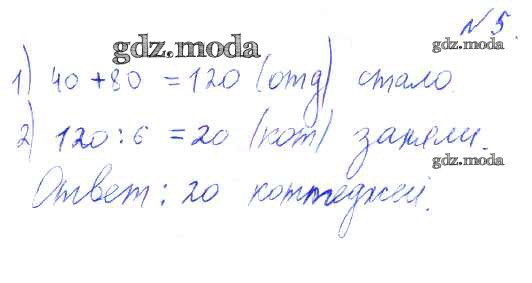 №5.
gdz.moda gdz.moda
1) 40 + 80 = 120 (отд) стало.
2) 120 : 6 = 20 (кот) заняли.
gdz.moda
Ответ: 20 коттеджей.